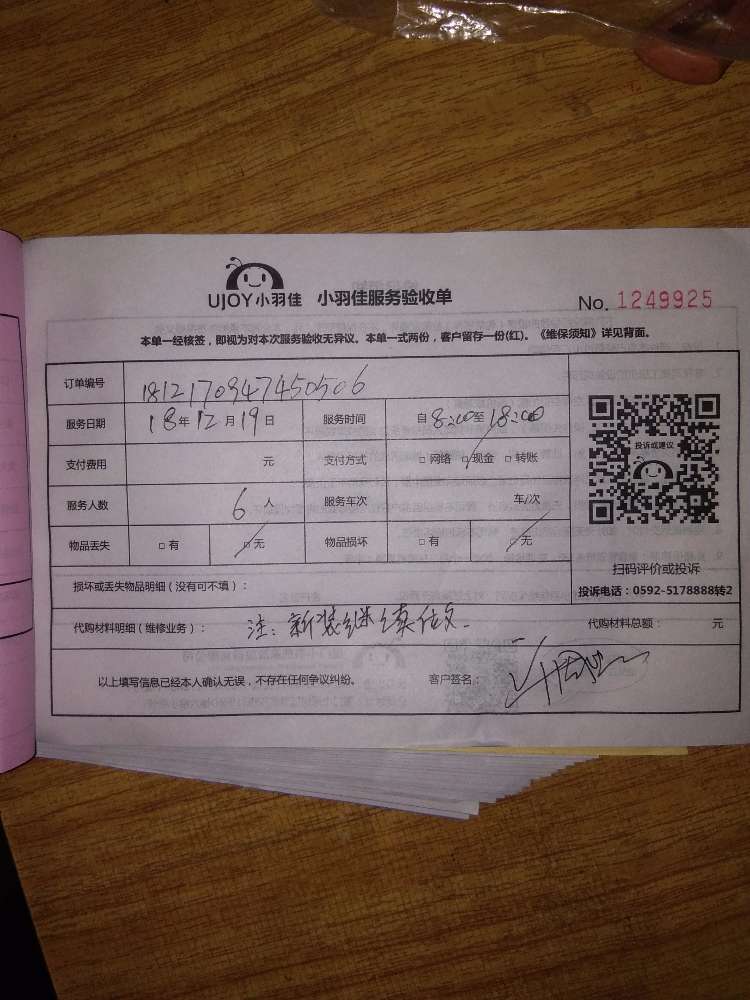 UJOY小羽佳 小羽佳服务验收单 No. 1249925
本单一经核签，即视为对本次服务验收无异议。本单一式两份，客户留存一份(红)。《维保须知》详见背面。
订单编号 1812170947450506
服务日期 18年12月19日 服务时间 自8:00至18:00
支付费用 元 支付方式 □网络 □现金 □转账
服务人数 6人 服务车次 车/次
物品丢失 □有 □无 物品损坏 □有 □无
投诉或建议
扫码评价或投诉
投诉电话：0592-5178888转2
损坏或丢失物品明细（没有可不填）：
代购材料明细（维修业务）： 注：新装继续做 代购材料总额： 元
以上填写信息已经本人确认无误，不存在任何争议纠纷。 客户签名：